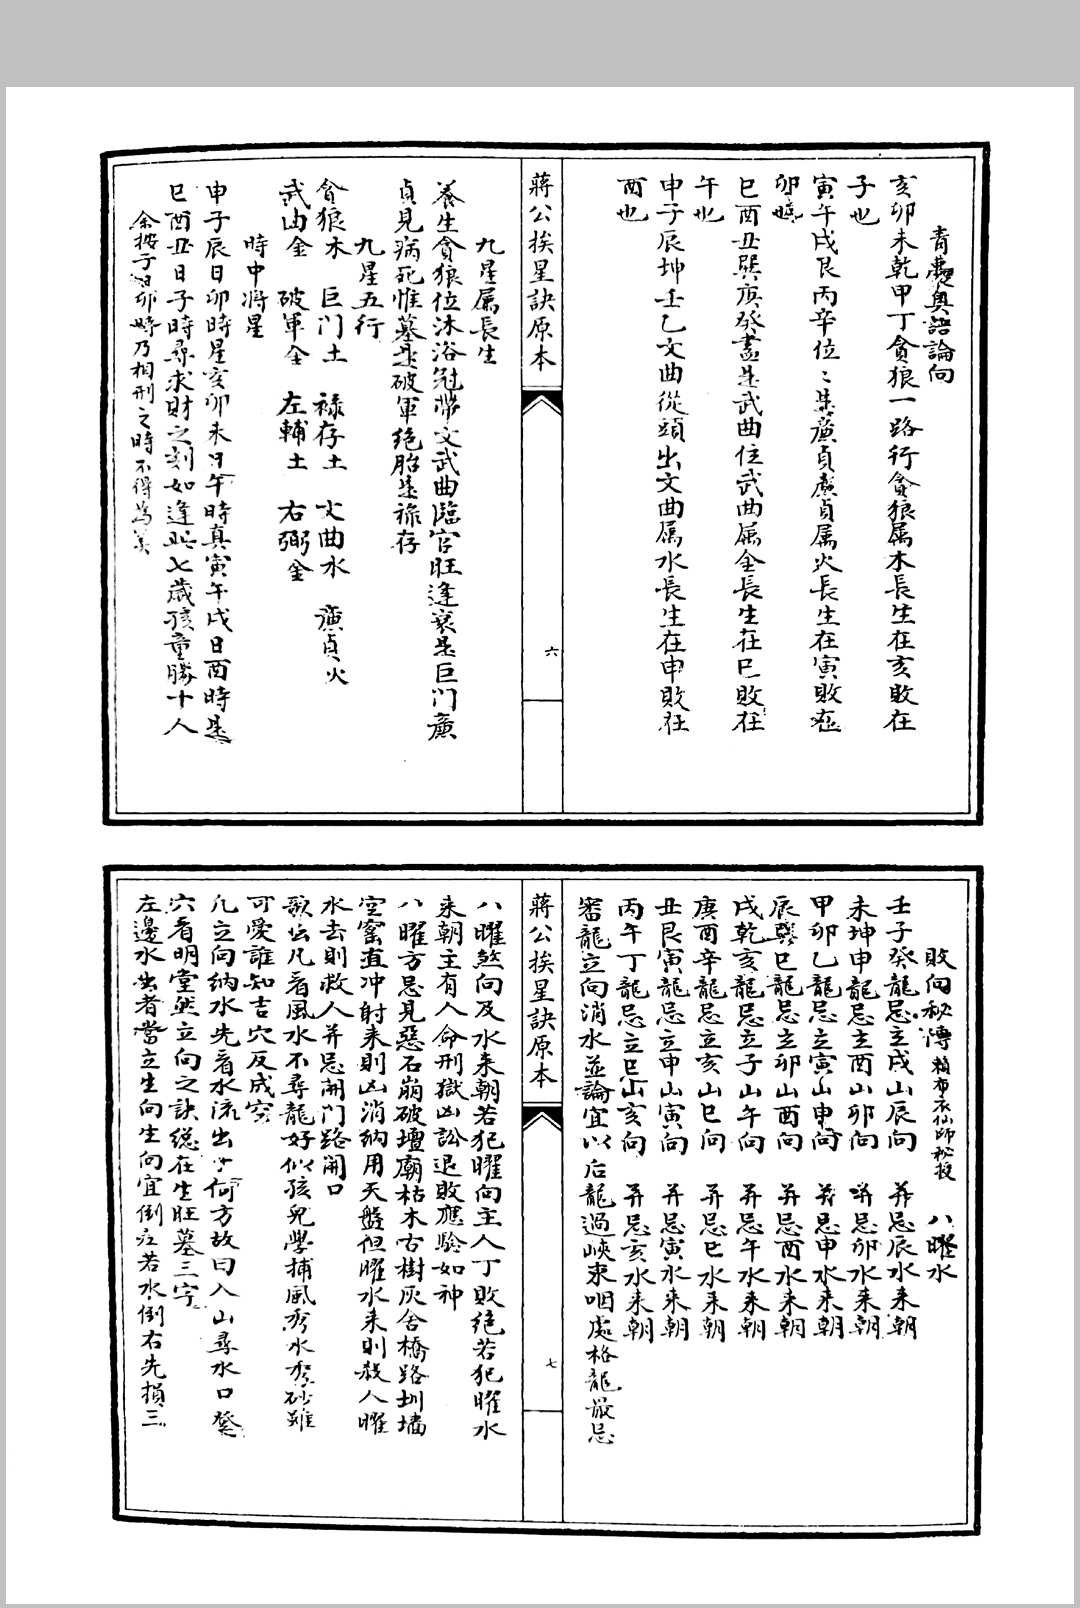 青囊奥語論向
亥卯未乾甲丁貪狼一路行貪狼属木長生在亥敗在
子也
寅午戌艮丙辛位位是廉貞廉貞属火長生在寅敗在
卯也
巳酉丑巽庚癸盡是武曲位武曲属金長生在巳敗在
午也
申子辰坤壬乙文曲從頭出文曲属水長生在申敗在
酉也
蔣公挨星訣原本
六
九星属長生
養生貪狼位沐浴冠帶文武曲臨官旺逢衰是巨门廉
貞見病死惟墓是破軍絶胎是祿存
九星五行
貪狼木 巨门土 祿存土 文曲水 廉貞火
武曲金 破軍金 左輔土 右弼金
時中将星
申子辰日卯時星亥卯未日午時真寅午戌日酉時是
巳酉丑日子時尋求財之刻如逢此七歲孩童勝十人
余按子日卯時乃相刑之時不得為美
敗向秘傳 賴布衣仙師秘授 八曜水
壬子癸龍忌立戌山辰向 并忌辰水来朝
未坤申龍忌立酉山卯向 并忌卯水来朝
甲卯乙龍忌立寅山申向 并忌申水来朝
辰巽巳龍忌立卯山酉向 并忌酉水来朝
戌乾亥龍忌立子山午向 并忌午水来朝
庚酉辛龍忌立亥山巳向 并忌巳水来朝
丑艮寅龍忌立申山寅向 并忌寅水来朝
丙午丁龍忌立巳山亥向 并忌亥水来朝
審龍立向消水並論宜以后龍過峽束咽處格龍最忌
蔣公挨星訣原本
七
八曜煞向及水来朝若犯曜向主人丁敗绝若犯曜水
来朝主有人命刑獄凶訟退敗應驗如神
八曜方忌見惡石崩破壇廟枯木古樹灰舍橋路圳墙
空窰直冲射来則凶消纳用天盤但曜水来則殺人曜
水去則救人并忌開门路開口
歌云凡看風水不尋龍好似孩兒學捕風秀水秀砂雖
可愛誰知吉穴反成空
凡立向纳水先看水流出于何方故曰入山尋水口登
穴看明堂然立向之訣総在生旺墓三字
左邊水出者當立生向生向宜倒左若水倒右先損三